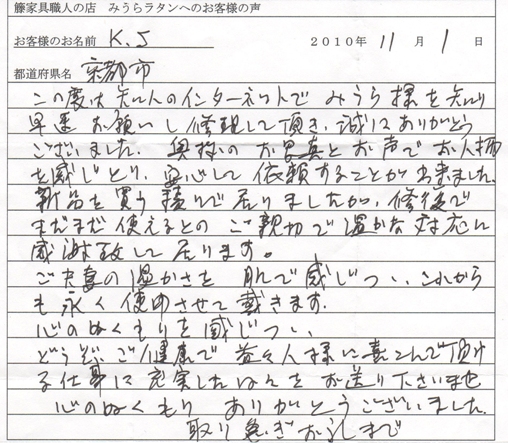 籐家具職人の店 みうらラタンへのお客様の声
お客様のお名前 K.J 2010年 11月 1日
都道府県名 京都市
この度は知人のインターネットでみうら様を知り
早速お願いし修理して頂き、誠にありがとう
ございました。奥様のお写真とお声でお人柄
を感じとり、安心して依頼することが出来ました。
新品を買う積りで居りましたが、修後で
まだまだ使えるとのご親切で温かな対応に
感謝致して居ります。
ご夫妻の温かさを肌で感じつゝ、これから
も永く使用させて戴きます。
心のぬくもりを感じつゝ、
どうぞ、ご健康で益々人様に喜こんで頂け
る仕事に充実した日々をお送り下さいませ
心のぬくもりありがとうございました。
取り急ぎお礼まで